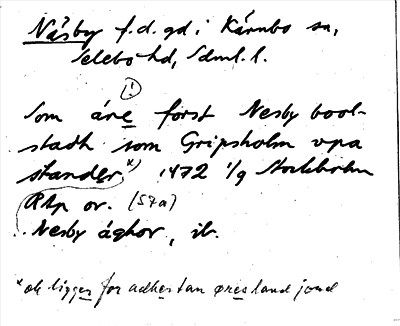 Näsby f.d. gd i Kärnbo sn,
Selebo hd, Sdml. l.
(!)
Som äre først Nesby bool-
stadh som Gripsholm vpa
stander x) 1472 1/9 Stockholm
RAp or. (57a)
Nesby äghor, ib.
x ok ligger for adhertan øres land jord